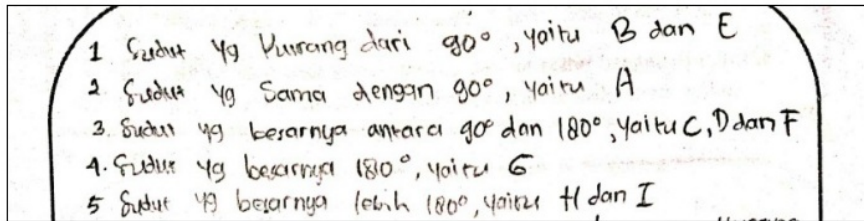 1 Sudut yg kurang dari 90°, yaitu B dan E
2. Sudut yg Sama dengan 90°, yaitu A
3. Sudut yg besarnya antara 90° dan 180°, yaitu C, D dan F
4. Sudut yg besarnya 180°, yaitu G
5 Sudut yg besarnya lebih 180°, yaitu H dan I